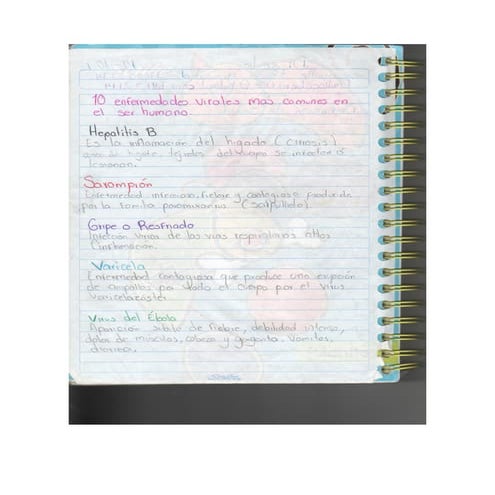 10 enfermedades virales mas comunes en
el ser humano.
Hepatitis B
Es la inflamación del higado (cirrosis)
de higado tejidos del se infectan o
lesionan.
Sarampión
Enfermedad infecciosa, fiebre y contagiosa producida
por la familia paramixovirus (salpullido)
Gripe o Resfriado
Infección virica de las vias respiratorias altas
(inflamación.
Varicela
Enfermedad contagiosa que produce una erupción
de ampollas por todo el cuerpo por el virus
varicela zóster
Virus del Ébola
Aparición súbita de fiebre, debilidad intensa,
dolor de músculos, cabeza y garganta, vomitos,
diarrea.